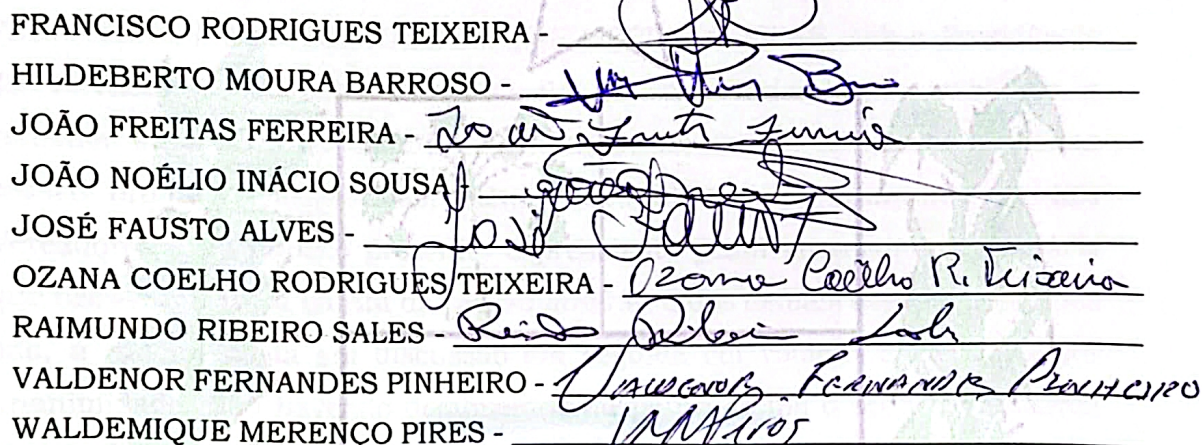 FRANCISCO RODRIGUES TEIXEIRA -
HILDEBERTO MOURA BARROSO -
JOÃO FREITAS FERREIRA -
JOÃO NOÉLIO INÁCIO SOUSA -
JOSÉ FAUSTO ALVES - José Faust
OZANA COELHO RODRIGUES TEIXEIRA - Ozana Coelho R. Teixeira
RAIMUNDO RIBEIRO SALES -
VALDENOR FERNANDES PINHEIRO - VALDENOR FERNANDES PINHEIRO
WALDEMIQUE MERENÇO PIRES -